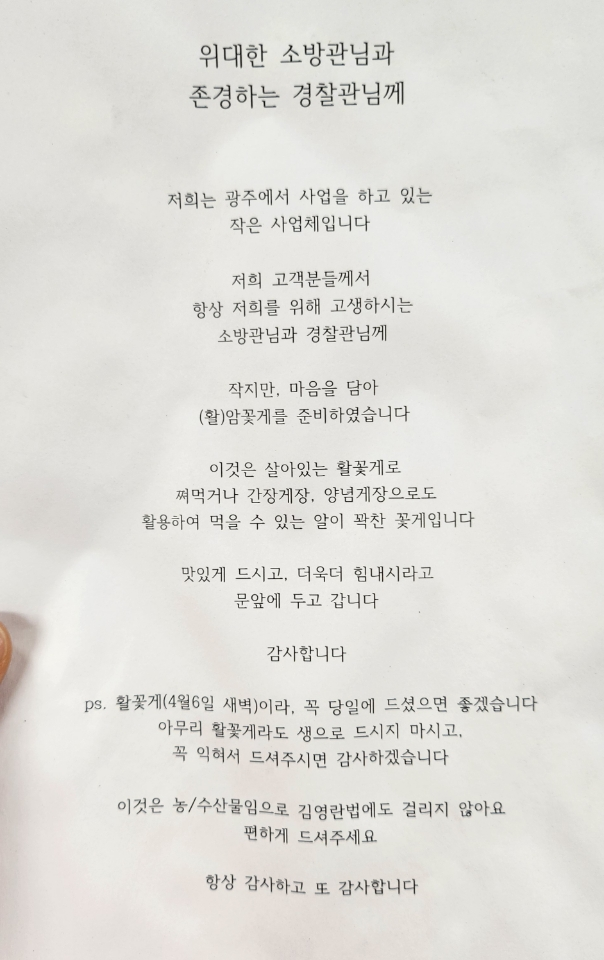 위대한 소방관님과
존경하는 경찰관님께
저희는 광주에서 사업을 하고 있는
작은 사업체입니다
저희 고객분들께서
항상 저희를 위해 고생하시는
소방관님과 경찰관님께
작지만, 마음을 담아
(활)암꽃게를 준비하였습니다
이것은 살아있는 활꽃게로
쪄먹거나 간장게장, 양념게장으로도
활용하여 먹을 수 있는 알이 꽉찬 꽃게입니다
맛있게 드시고, 더욱더 힘내시라고
문앞에 두고 갑니다
감사합니다
ps. 활꽃게(4월6일 새벽)이라, 꼭 당일에 드셨으면 좋겠습니다
아무리 활꽃게라도 생으로 드시지 마시고,
꼭 익혀서 드셔주시면 감사하겠습니다
이것은 농/수산물임으로 김영란법에도 걸리지 않아요
편하게 드셔주세요
항상 감사하고 또 감사합니다